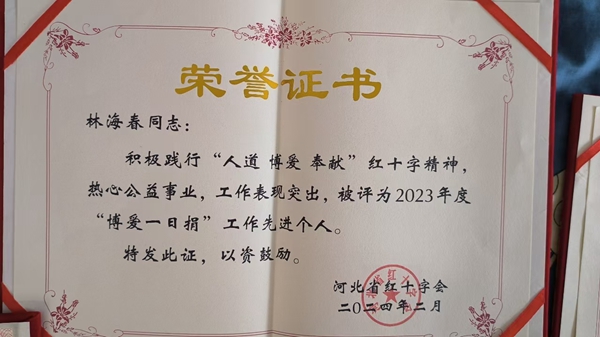 荣誉证书
林海春同志：
积极践行“人道 博爱 奉献”红十字精神，
热心公益事业，工作表现突出，被评为2023年度
“博爱一日捐”工作先进个人。
特发此证，以资鼓励。
河北省红十字会
二〇二四年二月